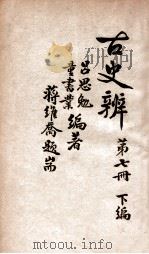 古史辨
第七冊 下編
呂思勉
童書業
編著
蔣維喬題耑
www.mtoou.info
mtoou.com